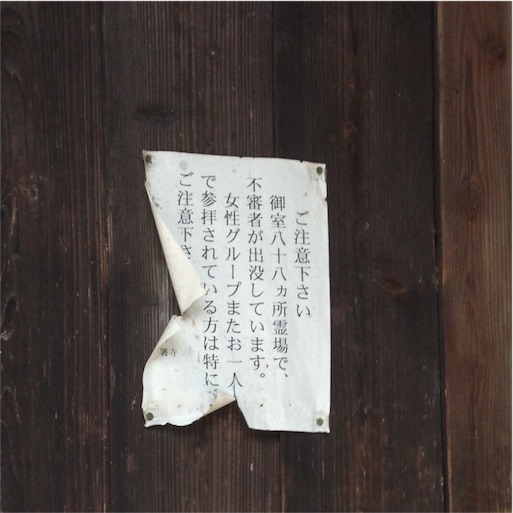 ご注意下さい
御室八十八ヵ所霊場で、
不審者が出没しています。
女性グループまたお一人
で参拝されている方は特に
ご注意下さ
署
寺